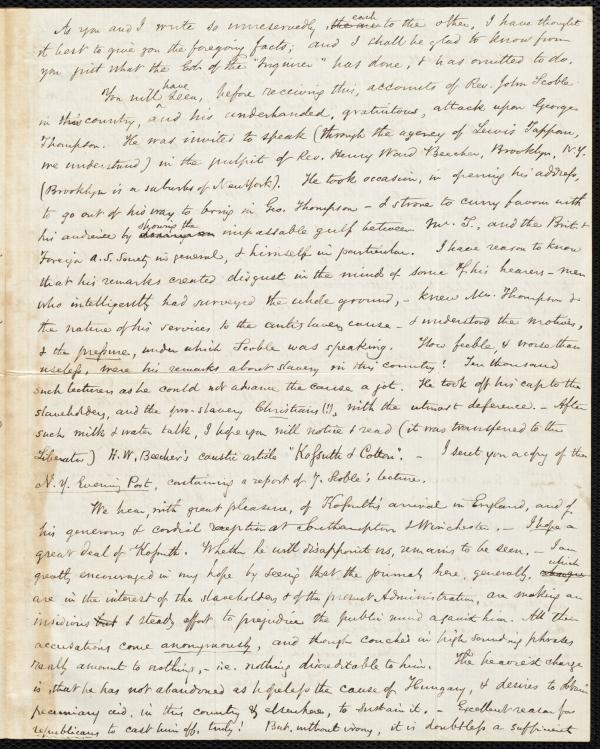 As you and I write so unreservedly each to the other, I have thought
it best to give you the foregoing facts; and I shall be glad to know from
you just what the Edr of the "Inquirer" has done, & has omitted to do.
You will have seen, before receiving this, accounts of Rev. John Scoble
in this country, and his underhanded, gratuitous, attack upon George
Thompson. He was invited to speak (through the agency of Lewis Tappan,
we understand) in the pulpit of Rev. Henry Ward Beecher, Brooklyn, N.Y.
(Brooklyn is a suburb of New York). He took occasion, in opening his address,
to go out of his way to bring in Geo. Thompson - & strove to curry favour with
his audience by showing the impassable gulf between Mr. T., and the Brit. &
Foreign A.S. Society in general, & himself in particular. I have reason to know
that his remarks created disgust in the minds of some of his hearers - men
who intelligently had surveyed the whole ground, - knew Mr. Thompson &
the nature of his services to the antislavery cause - & understood the motives,
& the pressure, under which Scoble was speaking. How feeble, & worse than
useless, were his remarks about slavery in this country! Ten thousand
such lectures as he could not advance the cause a jot. He took off his cap to the
slaveholders, and the pro-slavery Christians (!), with the utmost deference. - After
such milk & water talk, I hope you will notice & read (it was transferred to the
Liberator) H. W. Beecher's caustic article "Kossuth & Cotton". - I sent you a copy of the
N. Y. Evening Post, containing a report of J. Scoble's lecture.
We hear, with great pleasure, of Kossuth's arrival in England, and of
his generous & cordial reception at Southampton & Winchester. - I hope a
great deal of Kossuth. Whether he will disappoint us, remains to be seen. - I am
greatly encouraged in my hope by seeing that the journals here, generally, which
are in the interest of the slaveholders & of the present Administration, are making an
insidious & steady effort to prejudice the public mind against him. All their
accusations come anonymously, and though couched in high sounding phrases
really amount to nothing, - i.e. nothing discreditable to him. The heaviest charge
is, that he has not abandoned as hopeless the cause of Hungary, & desires to obtain
pecuniary aid, in this country & elsewhere, to sustain it. - Excellent reason for
republicans to cast him off, truly! But, without irony, it is doubtless a sufficient